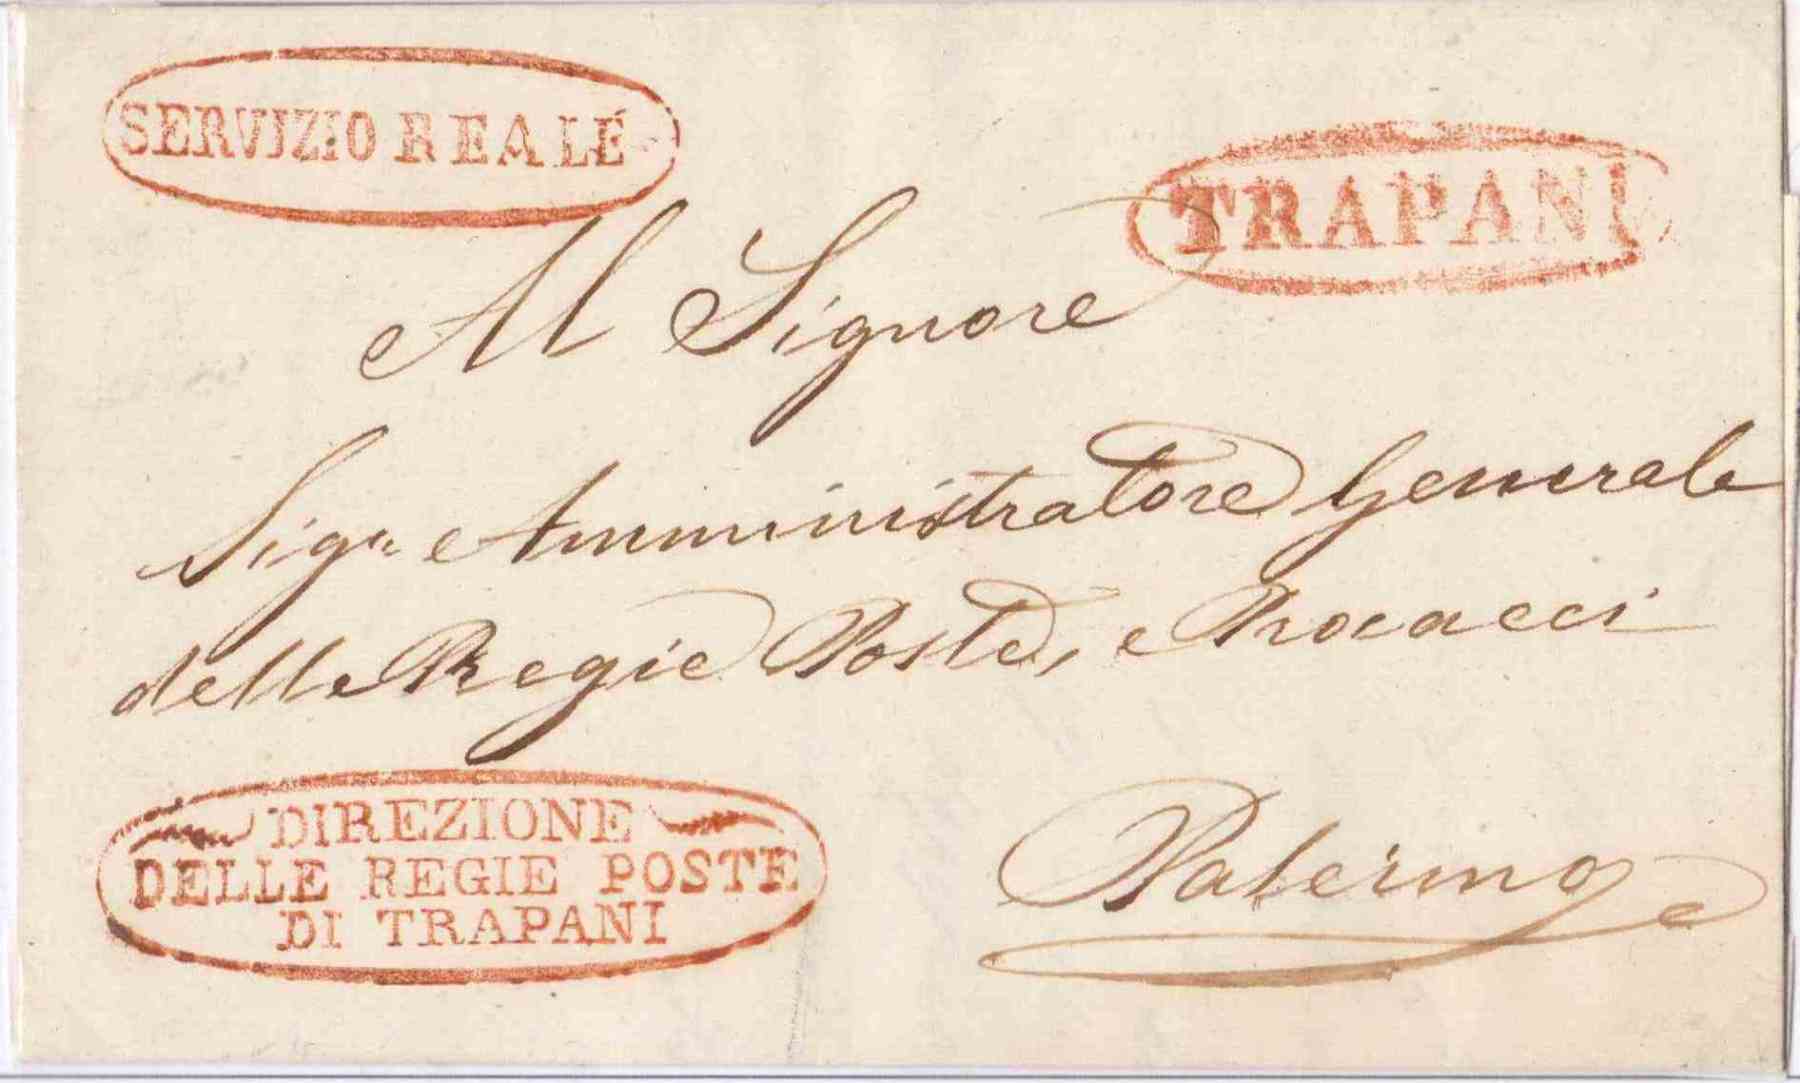 SERVIZIO REALE
TRAPANI
Al Signore
Sigr Amministratore Generale
delle Regie Poste, e Procacci
DIREZIONE
DELLE REGIE POSTE
DI TRAPANI
Palermo